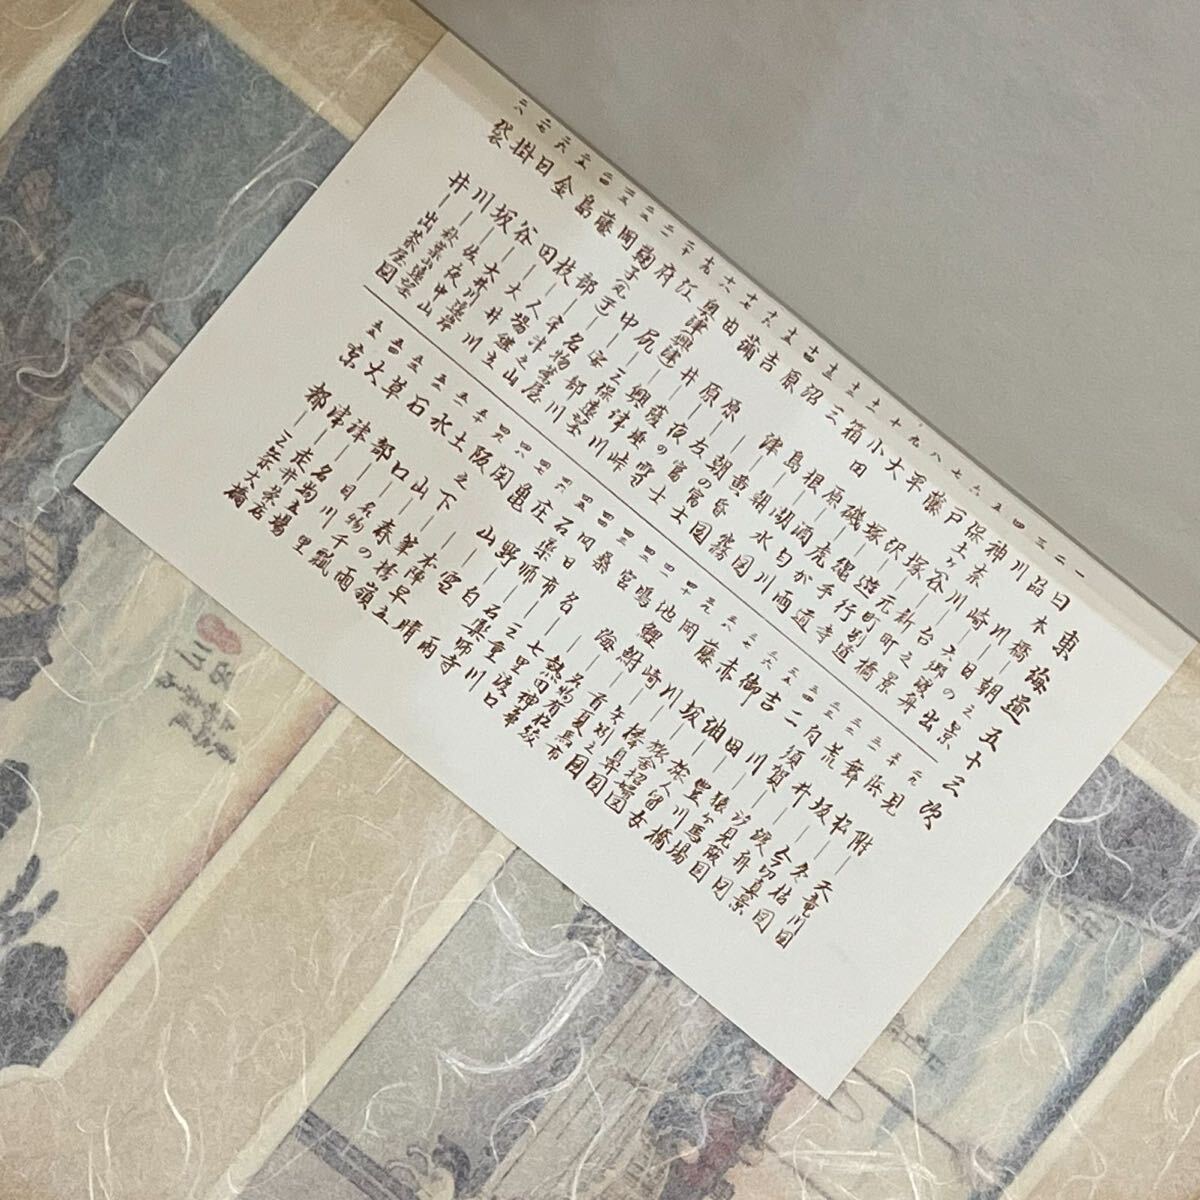 東海道五十三次
一 日本橋―朝之景
二 品川―日の出
三 川崎―六郷渡舟
四 神奈川―台之景
五 保土ヶ谷―新町橋
六 戸塚―元町別道
七 藤沢―遊行寺
八 平塚―縄手道
九 大磯―虎が雨
十 小田原―酒匂川
十一 箱根―湖水図
十二 三島―朝霧
十三 沼津―黄昏図
十四 原―朝の富士
十五 吉原―左富士
十六 蒲原―夜の雪
十七 由井―薩埵峠
十八 奥津―興津川
十九 江尻―三保遠望
二十 府中―安部川
二一 鞠子―名物茶屋
二二 岡部―宇津之山
二三 藤枝―人馬継立
二四 島田―大井川
二五 金谷―大井川遠岸
二六 日坂―佐夜中山
二七 掛川―秋葉山遠望
二八 袋井―出茶屋図
二九 見附―天竜川図
三十 浜松―冬枯図
三一 舞坂―今切真景
三二 荒井―渡舟図
三三 白須賀―汐見阪図
三四 二川―猿ヶ馬場
三五 吉田―豊川橋
三六 御油―旅人留女
三七 赤坂―旅舎招婦図
三八 藤川―棒鼻図
三九 岡崎―矢矧之
四十 池鯉鮒―首夏馬市
四一 鳴海―名物有松絞
四二 宮―熱田神事
四三 桑名―七里渡口
四四 四日市―三重川
四五 石薬師―石薬師寺
四六 庄野―白雨
四七 亀山―雪晴
四八 関―本陣早立
四九 阪之下―筆捨嶺
五十 土山―春の雨
五一 水口―名物干瓢
五二 石部―目川里
五三 草津―名物立場
五四 大津―走井茶店
五五 京都―三条大橋